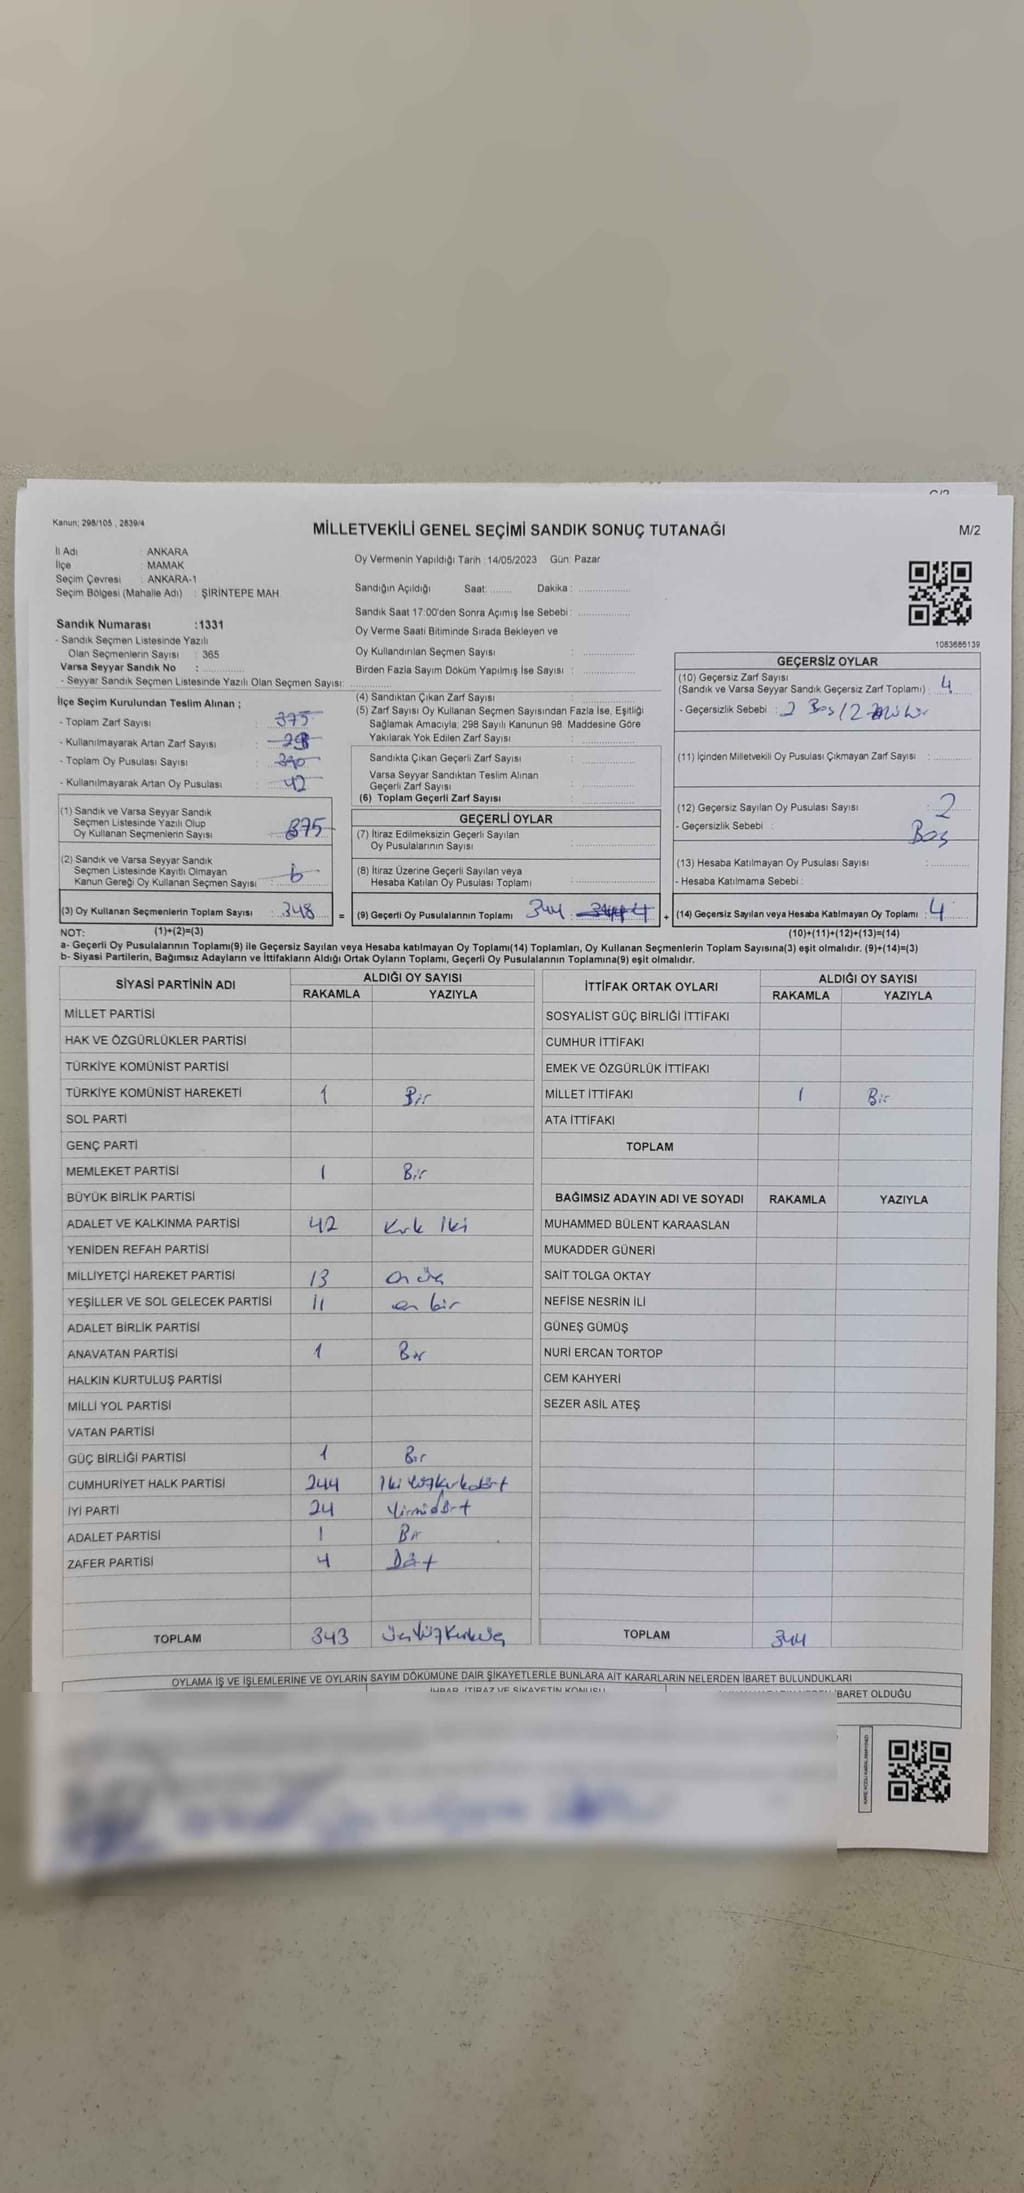 C/2
Kanun; 298/105 , 2839/4
MİLLETVEKİLİ GENEL SEÇİMİ SANDIK SONUÇ TUTANAĞI
M/2
İl Adı : ANKARA
İlçe : MAMAK
Seçim Çevresi : ANKARA-1
Seçim Bölgesi (Mahalle Adı) : ŞİRİNTEPE MAH.
Oy Vermenin Yapıldığı Tarih :14/05/2023 Gün: Pazar
Sandığın Açıldığı Saat:........ Dakika :
Sandık Saat 17:00'den Sonra Açımış İse Sebebi :
Oy Verme Saati Bitiminde Sırada Bekleyen ve
Oy Kullandırılan Seçmen Sayısı :
Birden Fazla Sayım Döküm Yapılmış İse Sayısı :
1083686139
Sandık Numarası :1331
- Sandık Seçmen Listesinde Yazılı
Olan Seçmenlerin Sayısı : 365
Varsa Seyyar Sandık No :
- Seyyar Sandık Seçmen Listesinde Yazılı Olan Seçmen Sayısı:
İlçe Seçim Kurulundan Teslim Alınan ;
- Toplam Zarf Sayısı : 375
- Kullanılmayarak Artan Zarf Sayısı :
- Toplam Oy Pusulası Sayısı :
- Kullanılmayarak Artan Oy Pusulası : 42
(1) Sandık ve Varsa Seyyar Sandık
Seçmen Listesinde Yazılı Olup
Oy Kullanan Seçmenlerin Sayısı :
(2) Sandık ve Varsa Seyyar Sandık
Seçmen Listesinde Kayıtlı Olmayan
Kanun Gereği Oy Kullanan Seçmen Sayısı :
(3) Oy Kullanan Seçmenlerin Toplam Sayısı : 348 =
(4) Sandıktan Çıkan Zarf Sayısı :
(5) Zarf Sayısı Oy Kullanan Seçmen Sayısından Fazla İse, Eşitliği
Sağlamak Amacıyla; 298 Sayılı Kanunun 98. Maddesine Göre
Yakılarak Yok Edilen Zarf Sayısı :
Sandıkta Çıkan Geçerli Zarf Sayısı :
Varsa Seyyar Sandıktan Teslim Alınan
Geçerli Zarf Sayısı :
(6) Toplam Geçerli Zarf Sayısı :
GEÇERLİ OYLAR
(7) İtiraz Edilmeksizin Geçerli Sayılan
Oy Pusulalarının Sayısı :
(8) İtiraz Üzerine Geçerli Sayılan veya
Hesaba Katılan Oy Pusulası Toplamı :
(9) Geçerli Oy Pusulalarının Toplamı : 344 +
GEÇERSİZ OYLAR
(10) Geçersiz Zarf Sayısı
(Sandık ve Varsa Seyyar Sandık Geçersiz Zarf Toplamı) : 4
- Geçersizlik Sebebi : 2 Boş / 2
(11) İçinden Milletvekili Oy Pusulası Çıkmayan Zarf Sayısı :
(12) Geçersiz Sayılan Oy Pusulası Sayısı : 2
- Geçersizlik Sebebi : Boş
(13) Hesaba Katılmayan Oy Pusulası Sayısı :
- Hesaba Katılmama Sebebi :
(14) Geçersiz Sayılan veya Hesaba Katılmayan Oy Toplamı : 4
NOT: (1)+(2)=(3)
(10)+(11)+(12)+(13)=(14)
a- Geçerli Oy Pusulalarının Toplamı(9) ile Geçersiz Sayılan veya Hesaba katılmayan Oy Toplamı(14) Toplamları, Oy Kullanan Seçmenlerin Toplam Sayısına(3) eşit olmalıdır. (9)+(14)=(3)
b- Siyasi Partilerin, Bağımsız Adayların ve İttifakların Aldığı Ortak Oyların Toplamı, Geçerli Oy Pusulalarının Toplamına(9) eşit olmalıdır.
SİYASİ PARTİNİN ADI ALDIĞI OY SAYISI
RAKAMLA YAZIYLA
MİLLET PARTİSİ
HAK VE ÖZGÜRLÜKLER PARTİSİ
TÜRKİYE KOMÜNİST PARTİSİ
TÜRKİYE KOMÜNİST HAREKETİ 1 Bir
SOL PARTİ
GENÇ PARTİ
MEMLEKET PARTİSİ 1 Bir
BÜYÜK BİRLİK PARTİSİ
ADALET VE KALKINMA PARTİSİ 42 Kırk İki
YENİDEN REFAH PARTİSİ
MİLLİYETÇİ HAREKET PARTİSİ 13 on üç
YEŞİLLER VE SOL GELECEK PARTİSİ 11 on bir
ADALET BİRLİK PARTİSİ
ANAVATAN PARTİSİ 1 Bir
HALKIN KURTULUŞ PARTİSİ
MİLLİ YOL PARTİSİ
VATAN PARTİSİ
GÜÇ BİRLİĞİ PARTİSİ 1 Bir
CUMHURİYET HALK PARTİSİ 244 İki Yüz Kırkdört
İYİ PARTİ 24 Yirmidört
ADALET PARTİSİ 1 Bir
ZAFER PARTİSİ 4 Dört
TOPLAM 343 üç Yüz Kırküç
İTTİFAK ORTAK OYLARI ALDIĞI OY SAYISI
RAKAMLA YAZIYLA
SOSYALİST GÜÇ BİRLİĞİ İTTİFAKI
CUMHUR İTTİFAKI
EMEK VE ÖZGÜRLÜK İTTİFAKI
MİLLET İTTİFAKI 1 Bir
ATA İTTİFAKI
TOPLAM
BAĞIMSIZ ADAYIN ADI VE SOYADI RAKAMLA YAZIYLA
MUHAMMED BÜLENT KARAASLAN
MUKADDER GÜNERİ
SAİT TOLGA OKTAY
NEFİSE NESRİN İLİ
GÜNEŞ GÜMÜŞ
NURİ ERCAN TORTOP
CEM KAHYERİ
SEZER ASİL ATEŞ
TOPLAM 344
OYLAMA İŞ VE İŞLEMLERİNE VE OYLARIN SAYIM DÖKÜMÜNE DAİR ŞİKAYETLERLE BUNLARA AİT KARARLARIN NELERDEN İBARET BULUNDUKLARI
İHBAR, İTİRAZ VE ŞİKAYETİN KONUSU
İBARET OLDUĞU